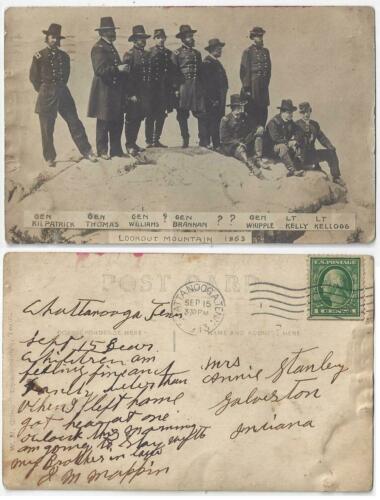 GEN KILPATRICK GEN THOMAS GEN WILLIAMS ? GEN BRANNAN ? ? GEN WHIPPLE LT KELLY LT KELLOGG
LOOKOUT MOUNTAIN 1863
POST CARD
CHATTANOOGA, TENN.
SEP 15
3:30 PM
U.S. POSTAGE
CORRESPONDENCE HERE
NAME AND ADDRESS HERE
Chattanooga Tenn
Sept 15
feeling fine and
than
when I left home
got hear at one
oclock this morning
am going to stay with
my Brother in law
J M Mappin
Mrs
Annie Stanley
Galveston
Indiana